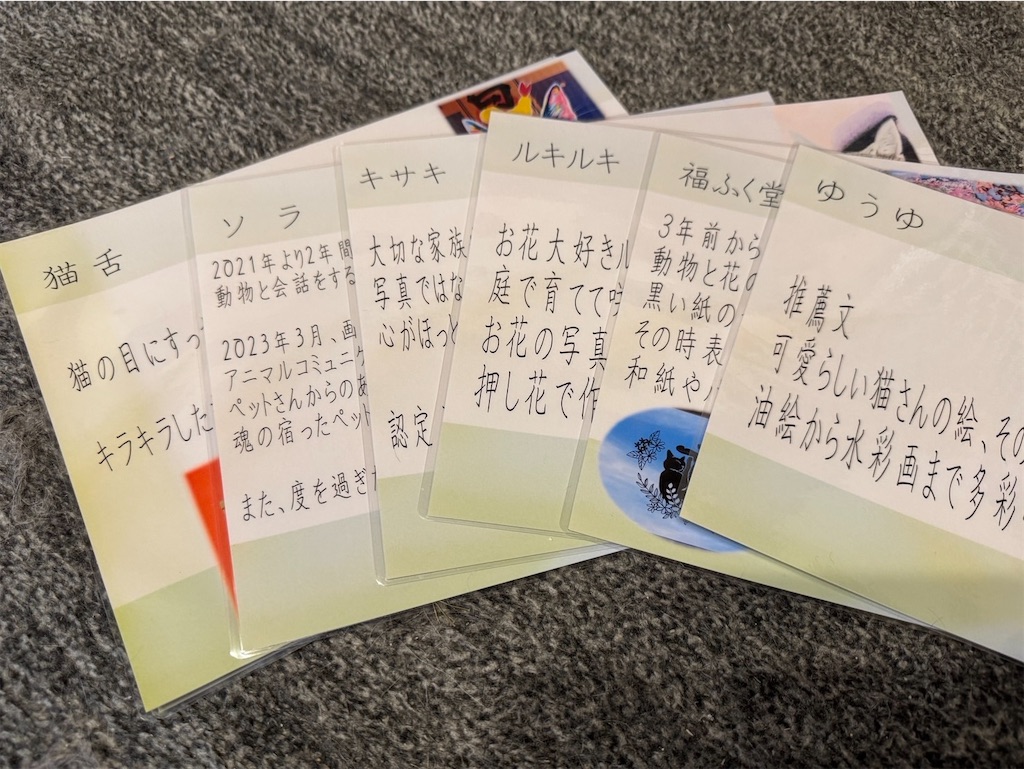 猫舌
猫の目にすっ
キラキラした
ソラ
2021年より2年間
動物と会話をする
2023年3月、画
アニマルコミュニケ
ペットさんからのあ
魂の宿ったペット
また、度を過ぎ
キサキ
大切な家族
写真ではな
心がほっと
認定
ルキルキ
お花大好きル
庭で育てて
お花の写真
押し花で作
福ふく堂
3年前から
動物と花の
黒い紙の
その時表
和紙や
ゆうゆ
推薦文
可愛らしい猫さんの絵、その
油絵から水彩画まで多彩